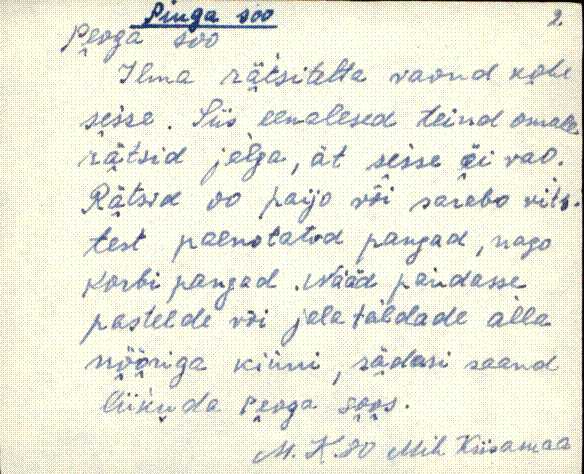 Pinga soo
2.
Peoga soo
Ilma rätsitelta vaond kohe
sesse. Siis eenalesed teind omale
rätsid jalga, ät sesse ei vao.
Rätsid oo paijo või sarebo vits-
test paenotatod pangad, nago
korbi pangad. Nääd pandasse
pastelde või jala taldade alla
nööriga kiini, sädasi saand
liikuda peoga soos.
M. K. 80 Mih. Kiisamaa